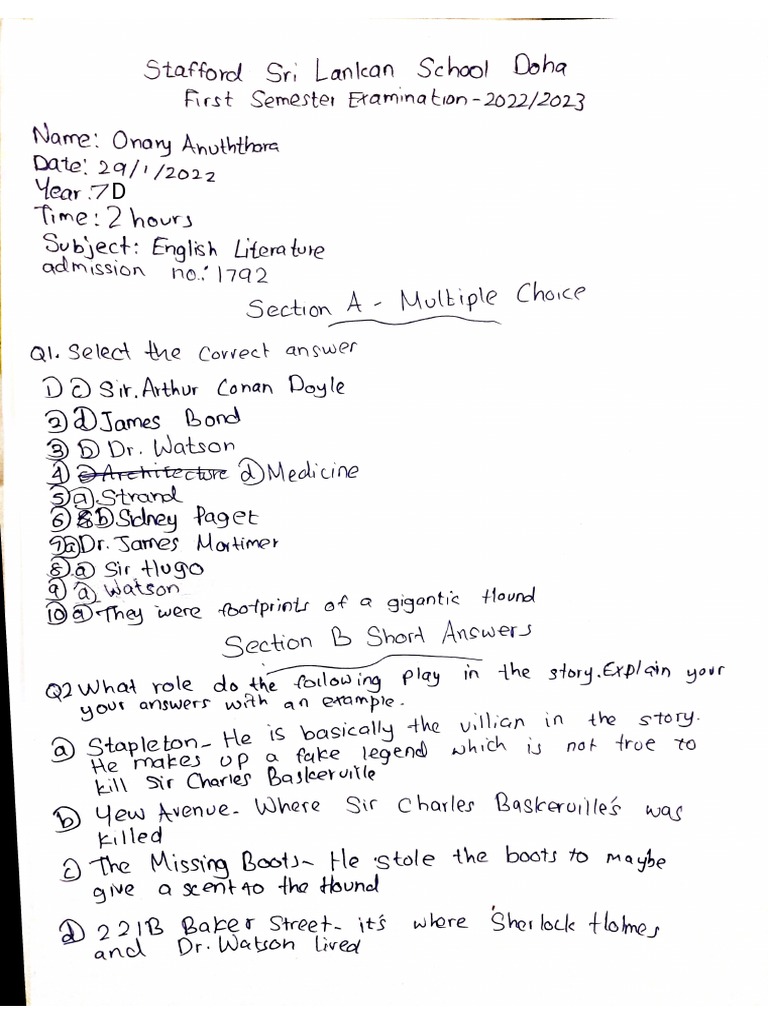 Stafford Sri Lankan School Doha
First Semester Examination - 2022/2023
Name: Onary Anuththora
Date: 29/1/2022
Year: 7D
Time: 2 hours
Subject: English Literature
admission no.: 1792
Section A - Multiple Choice
Q1. Select the correct answer
1) c) Sir. Arthur Conan Doyle
2) d) James Bond
3) b) Dr. Watson
4) c) Architecture d) Medicine
5) a). Strand
6) b) Sidney Paget
7) a) Dr. James Mortimer
8) a) Sir Hugo
9) a) Watson
10) a) They were footprints of a gigantic Hound
Section B Short Answers
Q2 What role do the following play in the story. Explain your
your answers with an example.
a) Stapleton - He is basically the villian in the story.
He makes up a fake legend which is not true to
kill Sir Charles Baskerville
b) Yew Avenue - Where Sir Charles Baskerville's was
killed
c) The Missing Boots - He stole the boots to maybe
give a scent to the Hound
d) 221B Baker Street - it's where Sherlock Holmes
and Dr. Watson lived